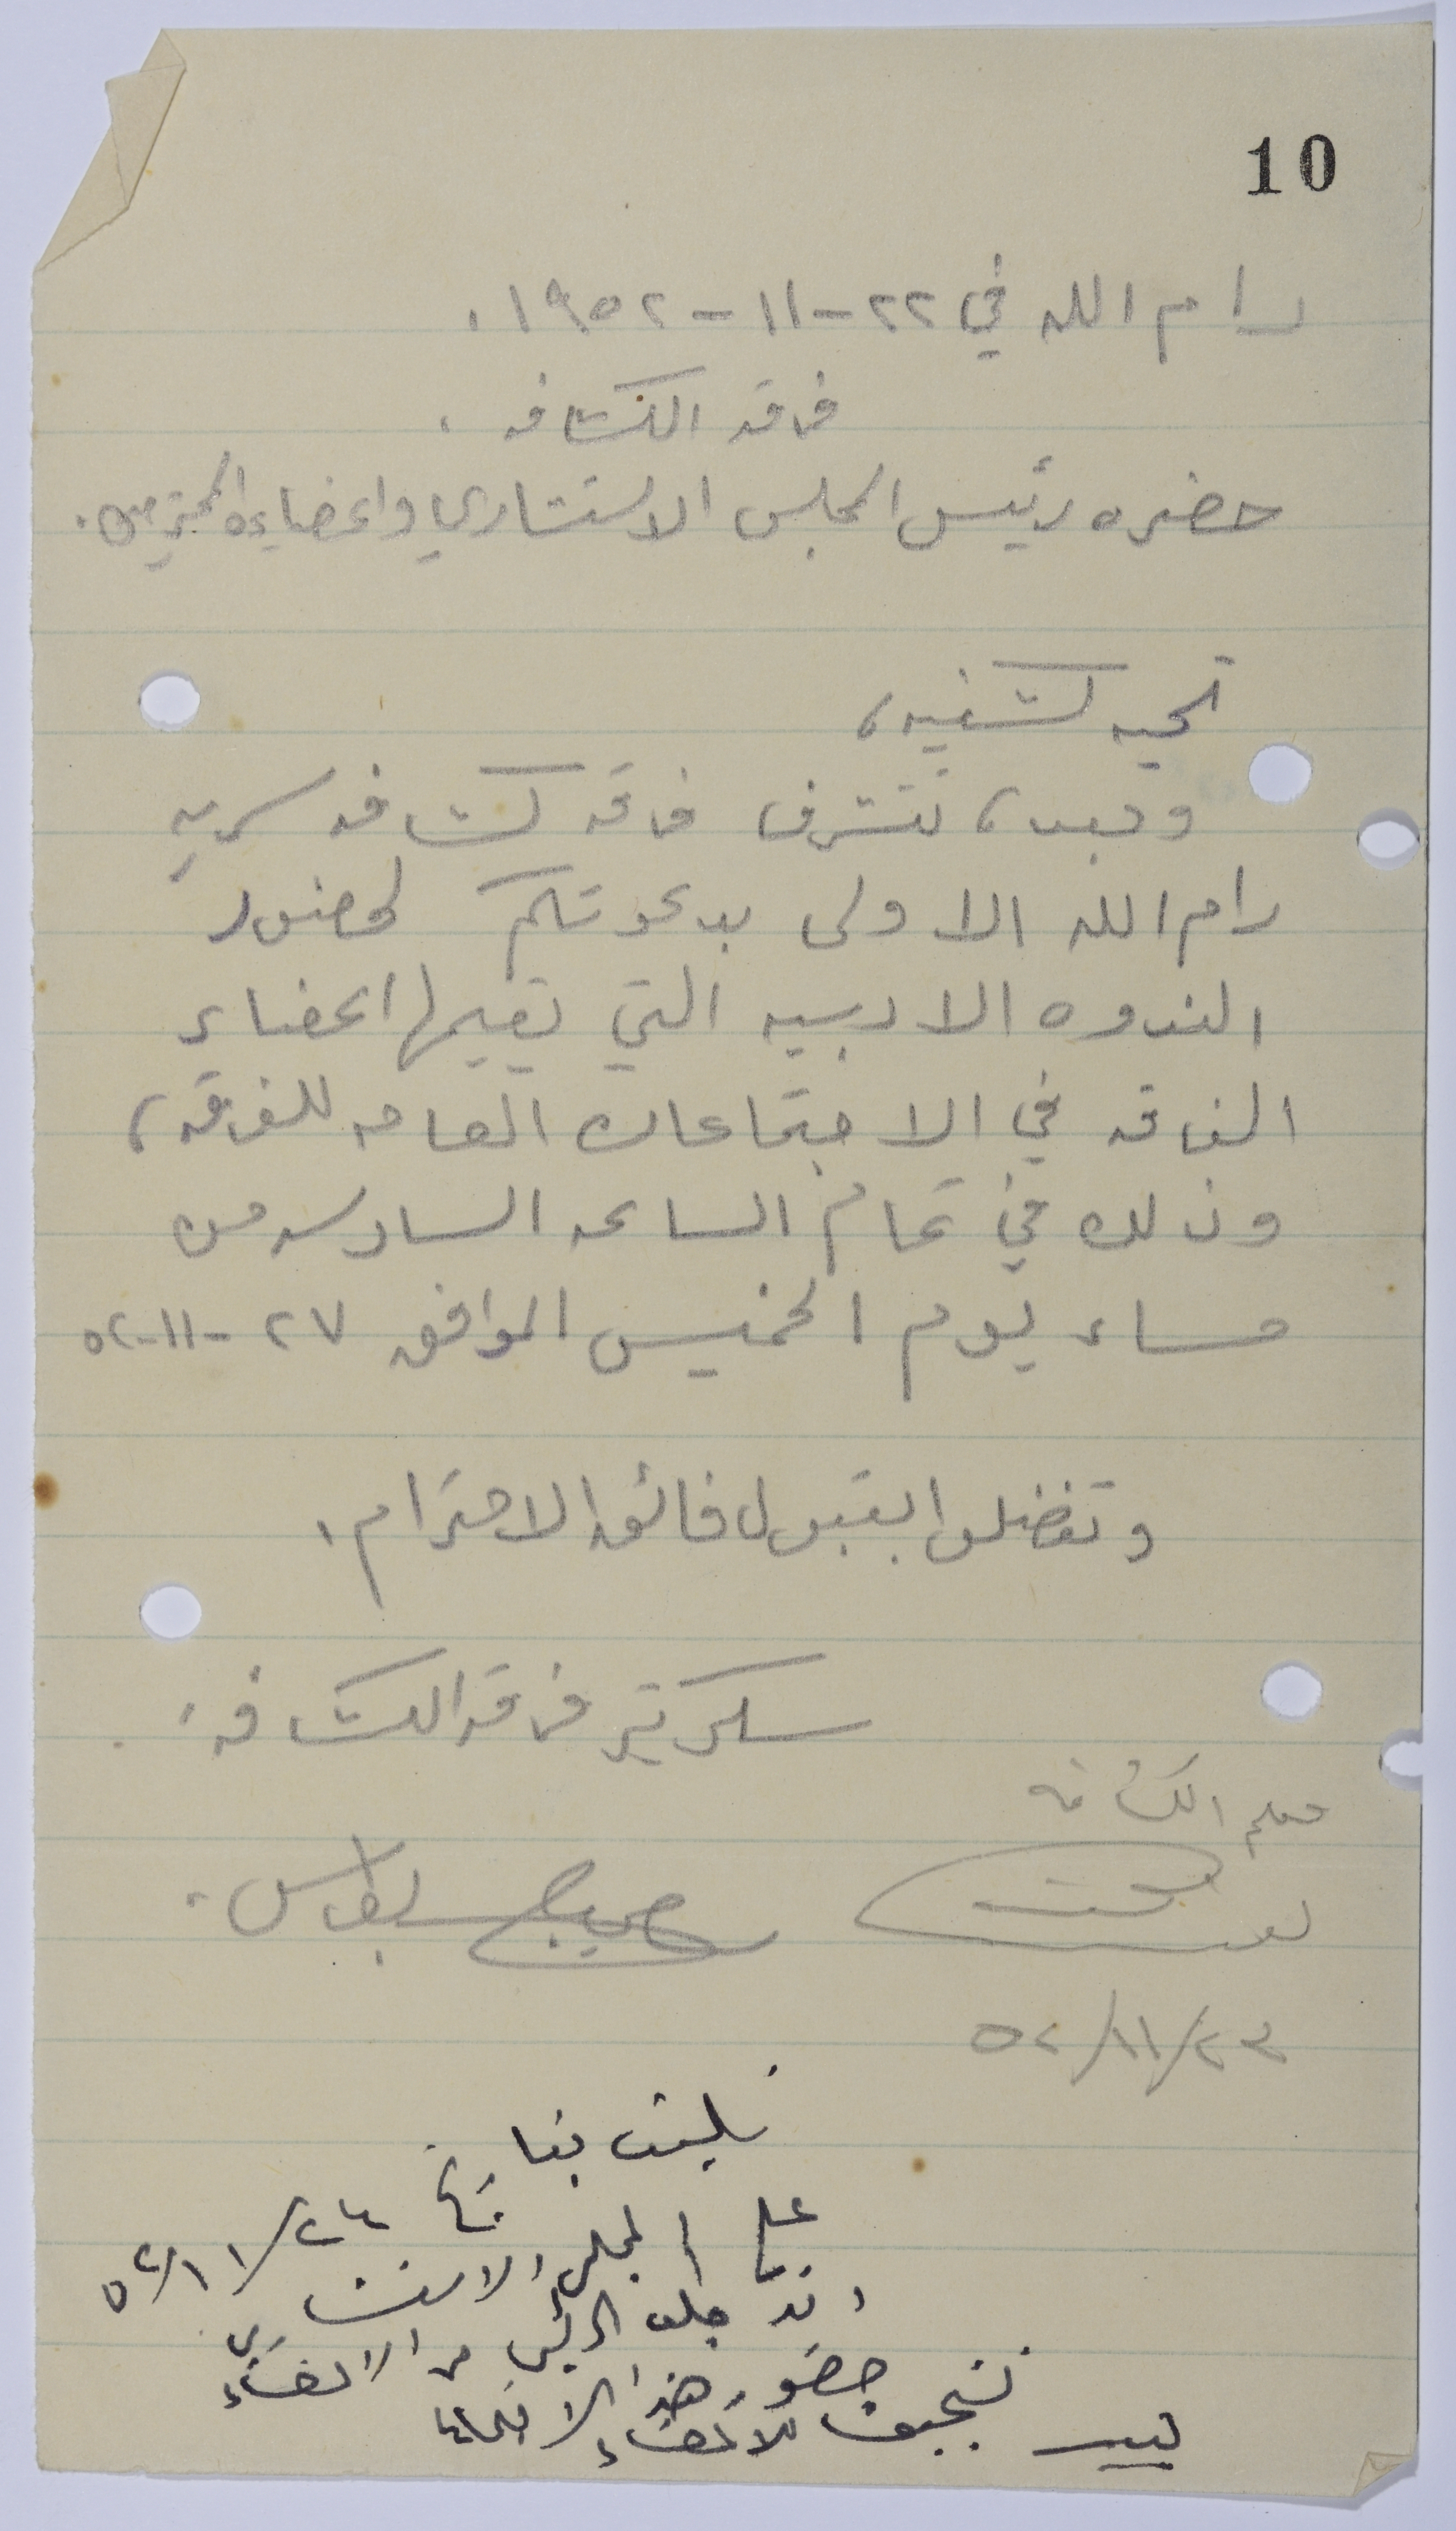 10
رام الله في ٢٢-١١-١٩٥٢.
فرقة الكشافه.
حضره رئيس المجلس الاستشاري واعضاءه المحترمين.
تحيه كشفيه،
وبعد، تتشرف فرقة كشافه سريه
رام الله الاولى بدعوتكم لحضور
الندوه الادبيه التي يقيمها اعضاء
الفرقه في الاجتماعات العامه للفرقه،
وذلك في تمام الساعه السادسه من
مساء يوم الخميس الموافق ٢٧-١١-٥٢
وتفضلوا بقبول فائق الاحترام.
سكرتير فرقة الكشافه.
معلم الكشافه
صبحي بطرس.
٢٣/١١/٥٢
على المجلس الاستشاري ٢٤/١١/٥٢
وقد طلب الرئيس من الاعضاء
حضور هذا الاجتماع